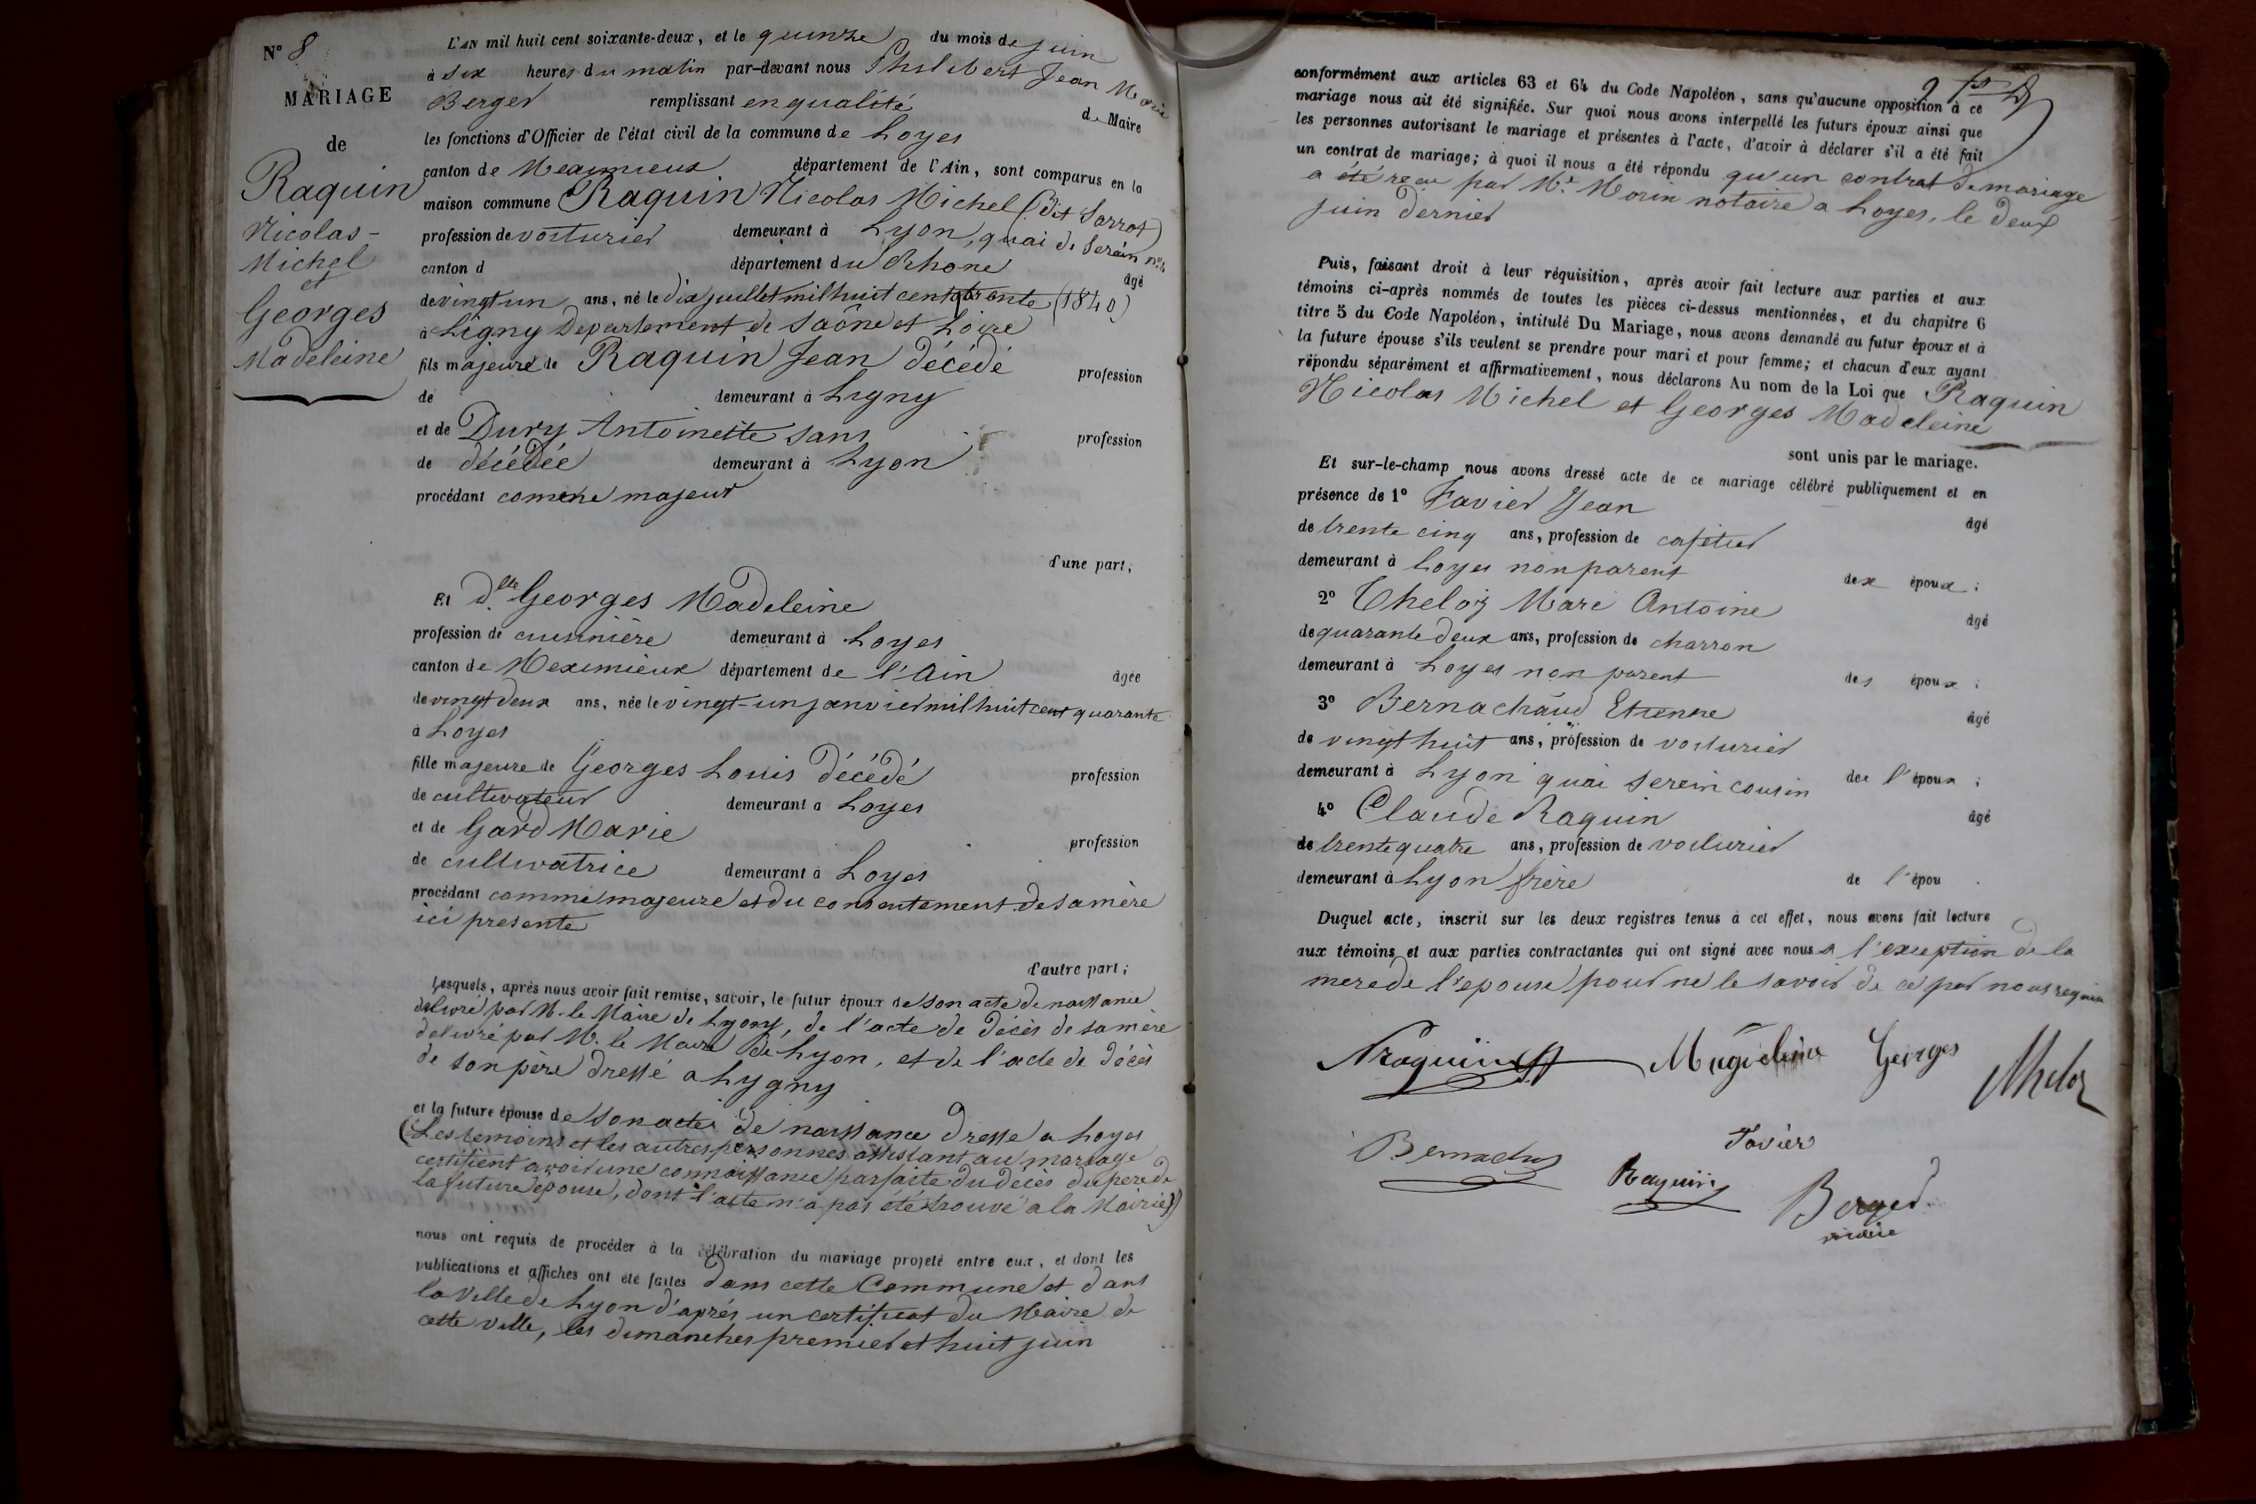 N° 8
MARIAGE
de
Raquin
Nicolas-
Michel
et
Georges
Madeleine
L'AN mil huit cent soixante-deux, et le quinze du mois de juin
à six heures du matin par-devant nous Philibert Jean Marie
Berger remplissant en qualité de Maire
les fonctions d'Officier de l'état civil de la commune de Loyes
canton de Meximieux département de l'Ain, sont comparus en la
maison commune Raquin Nicolas Michel (dit Sarrot)
profession de voiturier demeurant à Lyon, quai de Serein n°
canton d département du Rhone âgé
de vingt un ans, né le dix juillet mil huit cent quarante (1840)
à Ligny Departement de Saône et Loire
fils majeur de Raquin Jean décédé profession
de demeurant à Ligny
et de Dury Antoinette sans profession
de décédée demeurant à Lyon
procédant comme majeur
d'une part;
Et d.lle Georges Madeleine
profession de cuisinière demeurant à Loyes
canton de Meximieux département de l'Ain âgée
de vingt deux ans, née le vingt-un janvier mil huit cent quarante
à Loyes
fille majeure de Georges Louis décédé profession
de cultivateur demeurant a Loyes
et de Gard Marie profession
de cultivatrice demeurant à Loyes
procédant comme majeure et du consentement de sa mère
ici presente
d'autre part;
Lesquels, après nous avoir fait remise, savoir, le futur époux de son acte de naissance
delivré par M. le Maire de Lygny, de l'acte de décès de sa mère
delivré par M. le Maire de Lyon, et de l'acte de décès
de son père dressé a Lygny
et la future épouse de son acte de naissance dressé a Loyes
(Les temoins et les autres personnes assistant au mariage
certifient avoir une connaissance parfaite du décès du pere de
la future épouse, dont l'acte n'a pas été trouvé a la Mairie))
nous ont requis de procéder à la célébration du mariage projeté entre eux, et dont les
publications et affiches ont été faites dans cette Commune et dans
la Ville de Lyon d'après un certificat du Maire de
cette ville, les dimanches premier et huit juin
conformément aux articles 63 et 64 du Code Napoléon, sans qu'aucune opposition à ce
mariage nous ait été signifiée. Sur quoi nous avons interpellé les futurs époux ainsi que
les personnes autorisant le mariage et présentes à l'acte, d'avoir à déclarer s'il a été fait
un contrat de mariage; à quoi il nous a été répondu qu'un contrat de mariage
a été reçu par Me Morin notaire a Loyes, le deux
juin dernier
Puis, faisant droit à leur réquisition, après avoir fait lecture aux parties et aux
témoins ci-après nommés de toutes les pièces ci-dessus mentionnées, et du chapitre 6
titre 5 du Code Napoléon, intitulé Du Mariage, nous avons demandé au futur époux et à
la future épouse s'ils veulent se prendre pour mari et pour femme; et chacun d'eux ayant
répondu séparément et affirmativement, nous déclarons Au nom de la Loi que Raquin
Nicolas Michel et Georges Madeleine
sont unis par le mariage.
Et sur-le-champ nous avons dressé acte de ce mariage célébré publiquement et en
présence de 1° Favier Jean âgé
de trente cinq ans, profession de cafetier
demeurant à Loyes non parent des époux;
2° Theloz Marc Antoine âgé
de quarante deux ans, profession de charron
demeurant à Loyes non parent des époux;
3° Bernachaud Etienne âgé
de vingt huit ans, profession de voiturier
demeurant à Lyon quai Serein cousin de l'époux;
4° Claude Raquin âgé
de trente quatre ans, profession de voiturier
demeurant à Lyon frère de l'épou .
Duquel acte, inscrit sur les deux registres tenus à cet effet, nous avons fait lecture
aux témoins et aux parties contractantes qui ont signé avec nous a l'exception de la
mere de l'epouse pour ne le savoir de ce par nous requise
NRaquin Magdeleine Georges Theloz
Favier
Raquin
Berger
maire